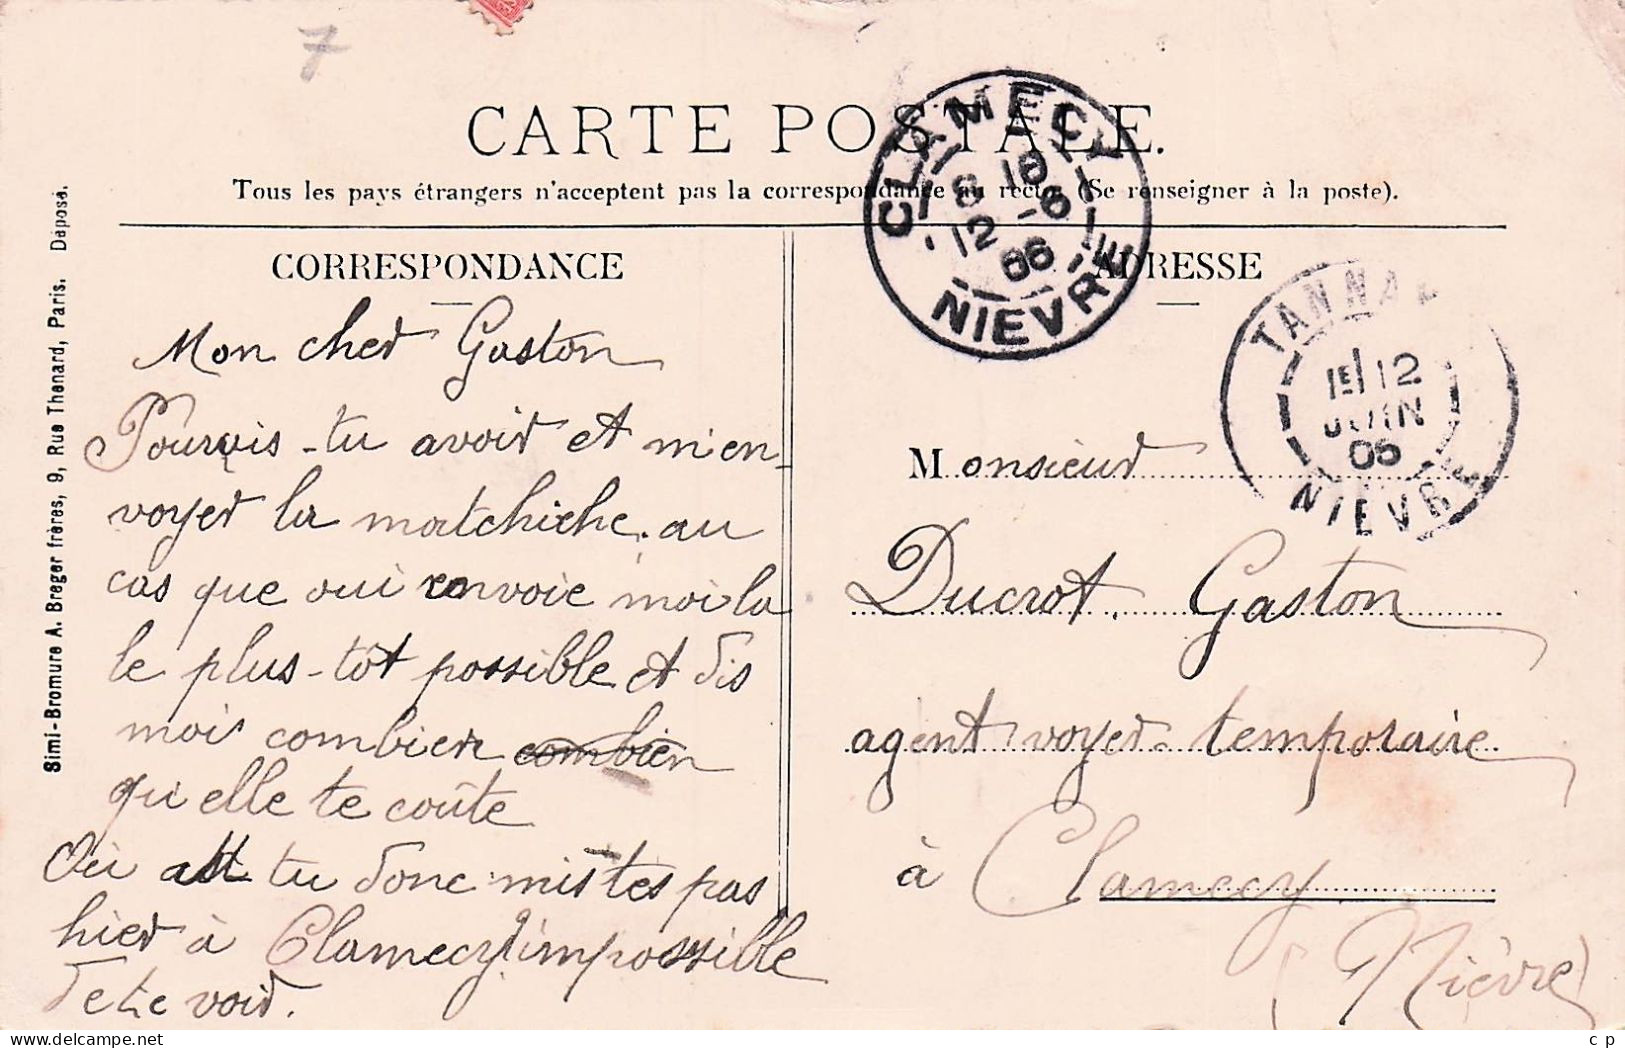 7
CARTE POSTALE.
Tous les pays étrangers n'acceptent pas la correspondance au recto. (Se renseigner à la poste).
CORRESPONDANCE
ADRESSE
CLAMECY
12 -6
06
NIEVRE
TANNAY
1E/12
JUIN
06
NIEVRE
Simi-Bromure A. Breger frères, 9, Rue Thenard, Paris. Déposé.
Mon cher Gaston
Pourais-tu avoir et m'en-
voyer la matchiche. au
cas que oui renvoie moi la
le plus-tôt possible et dis
moi combien combien
qu'elle te coûte
Où tu donc mis tes pas
hier à Clamecy impossible
de te voir.
Monsieur
Ducrot. Gaston
agent voyer temporaire
à Clamecy
(Nièvre)
c p